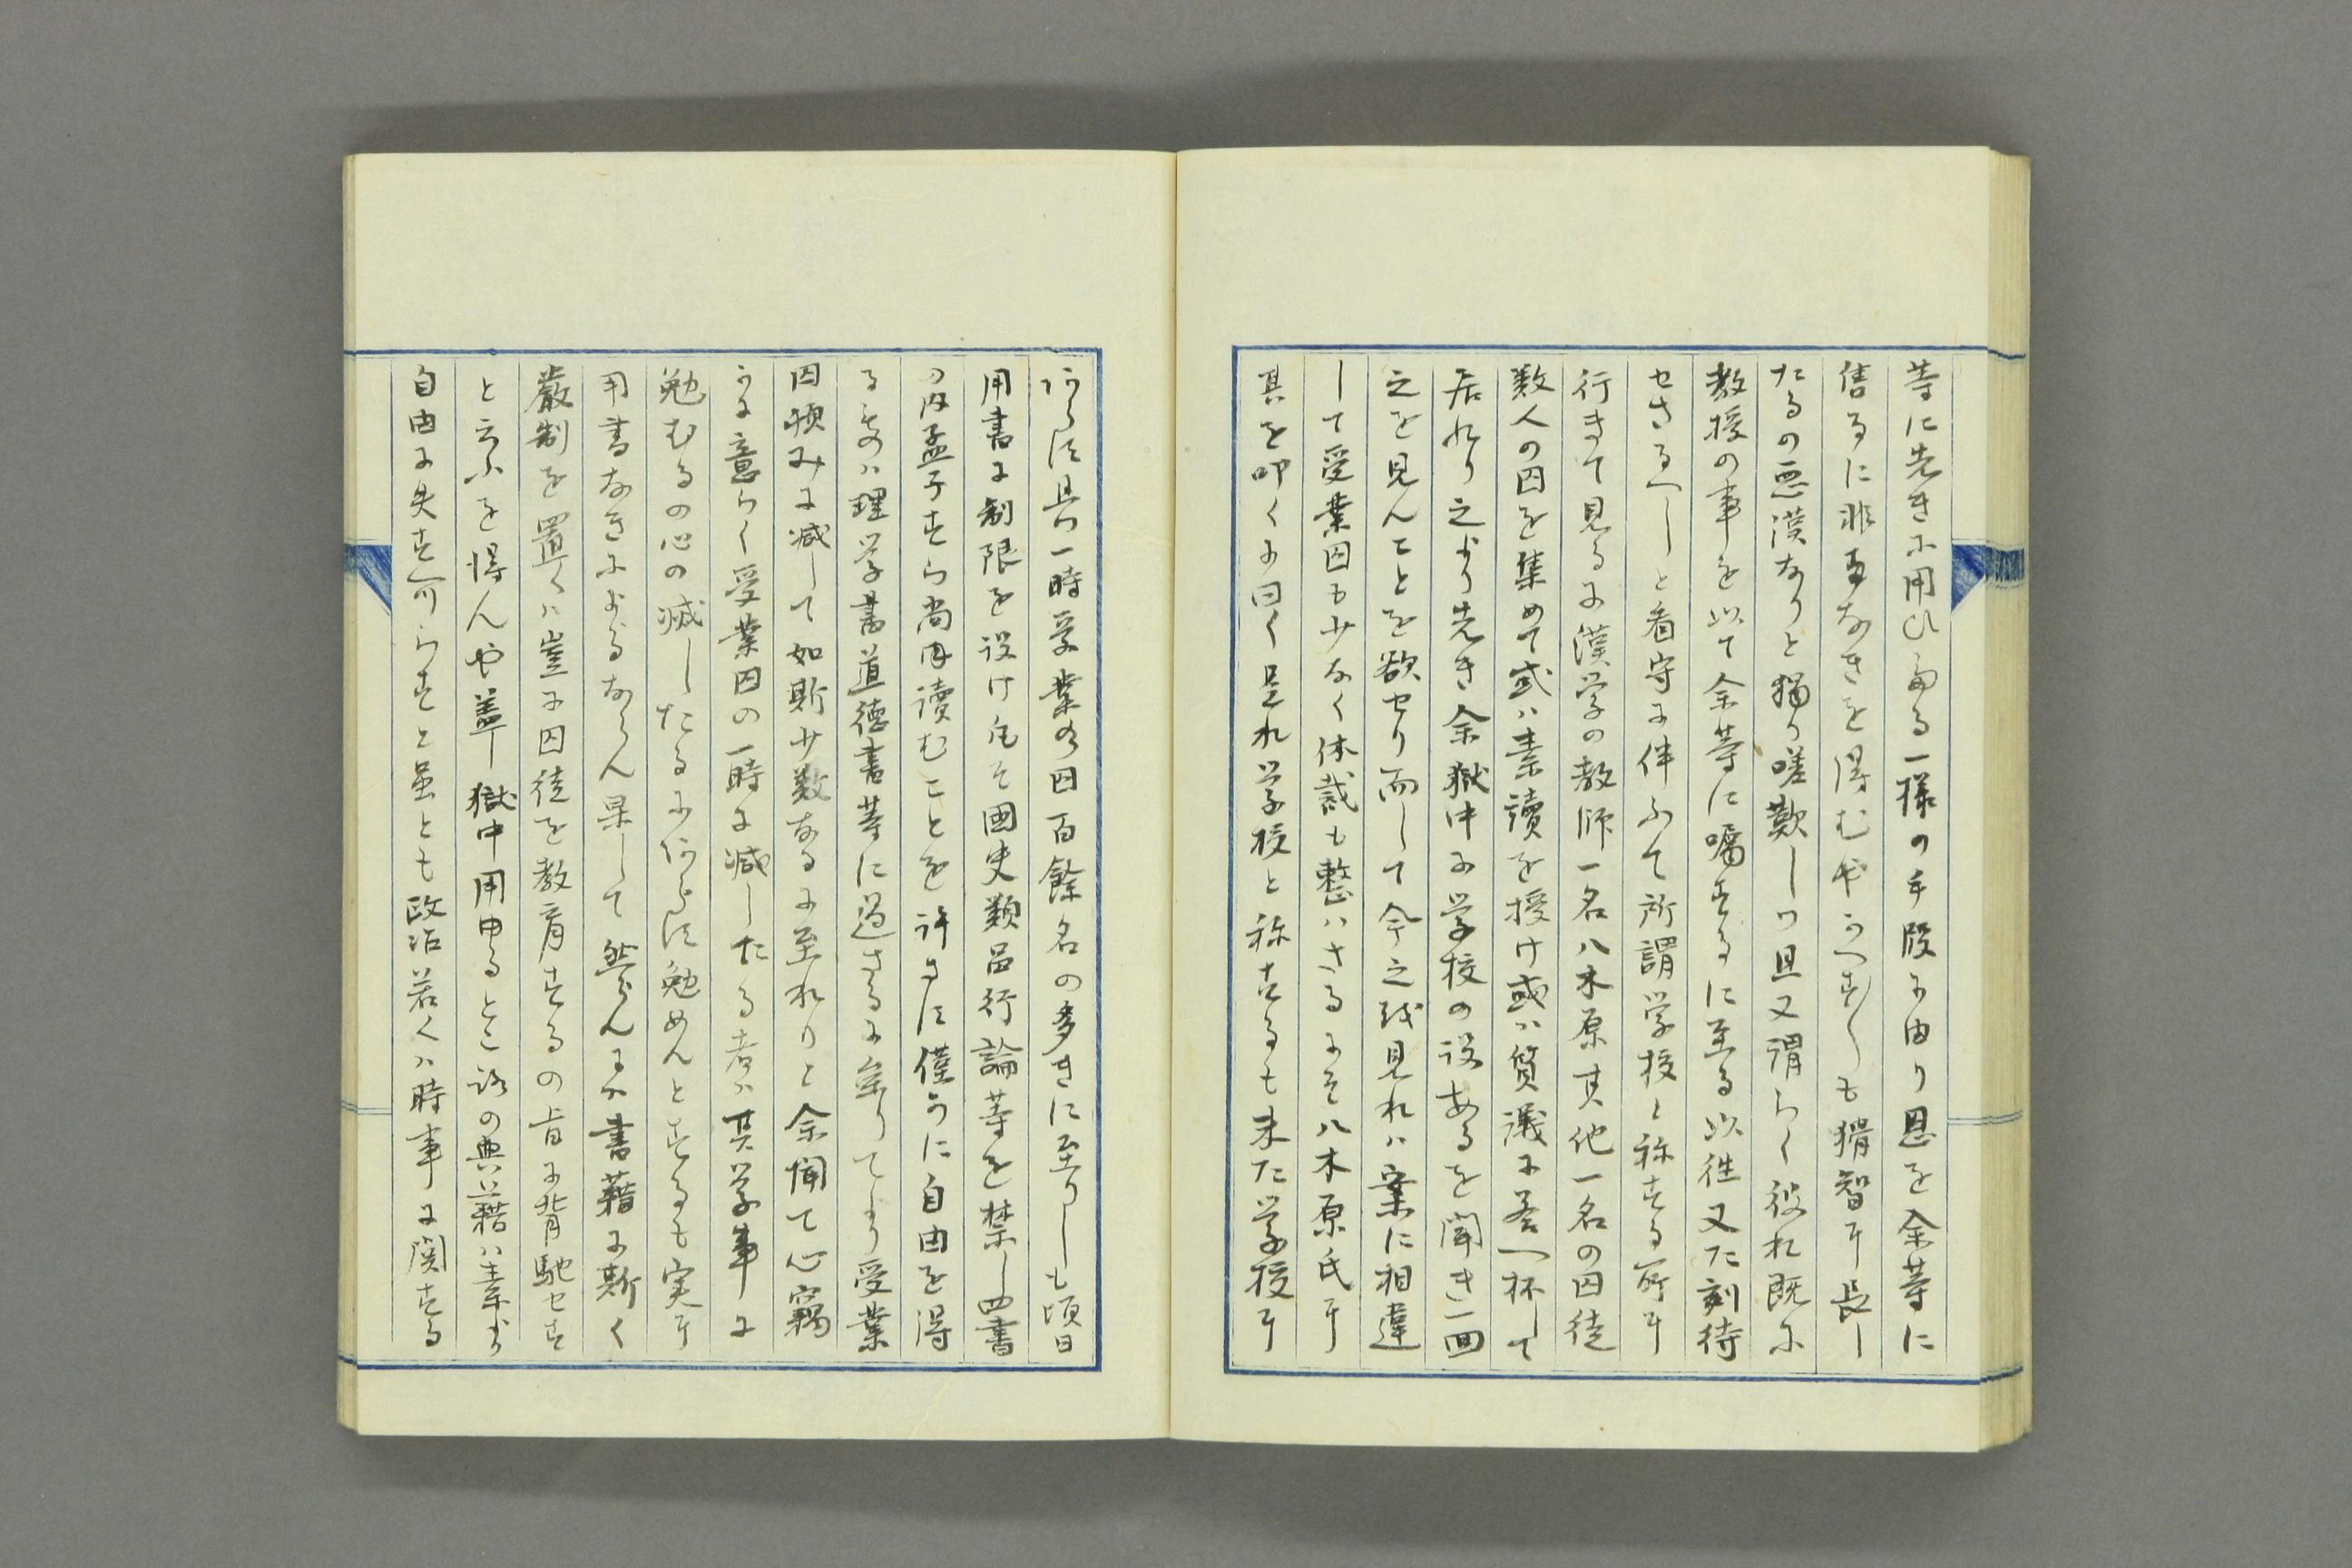 等に先きに用ひ為る一様の手段に由り恩を余等に
售るに非事なきを得むや可へすしも猾智に長し
たるの悪漢なりと独り嗟歎しつ且又謂らく彼れ既に
教授の事を以て余等に嘱するに至る以往又た刻待
せさるへしと看守に伴ふて所謂学校と称する所に
行きて見るに漢学の教師一名八木原其他一名の囚徒
数人の囚を集めて或ハ素読を授け或ハ質議に答へ杯して
居れり之より先き余獄中に学校の設あるを聞き一回
之を見んことを欲せり而して今之を見れハ案に相違
して受業囚も少なく体裁も整ハさるにそ八木原氏に
其を叩くに曰く是れ学校と称するも未た学校に
あらす具つ一時受業の囚百餘名の多きに至りしも頃日
用書に制限を設け凡そ国史類品行論等を禁し四書
の内孟子すら尚ほ読むことを許さす僅かに自由を得
るものハ理学書道徳書等に過さるに至りてより受業
囚頓みに減して如斯少数なるに至れりと余聞て心竊
かに意らく受業囚の一時に減したる者ハ其学事に
勉むるの心の滅したるにあらす勉めんとするも実に
用書なきによるならん果して然らんにハ書籍に斯く
厳制を置くハ豈に囚徒を教育するの旨に背馳せす
と云ふを得んや蓋し獄中用ゆるところの典籍ハ素より
自由に失す可らすと雖とも政治若くハ時事に関する